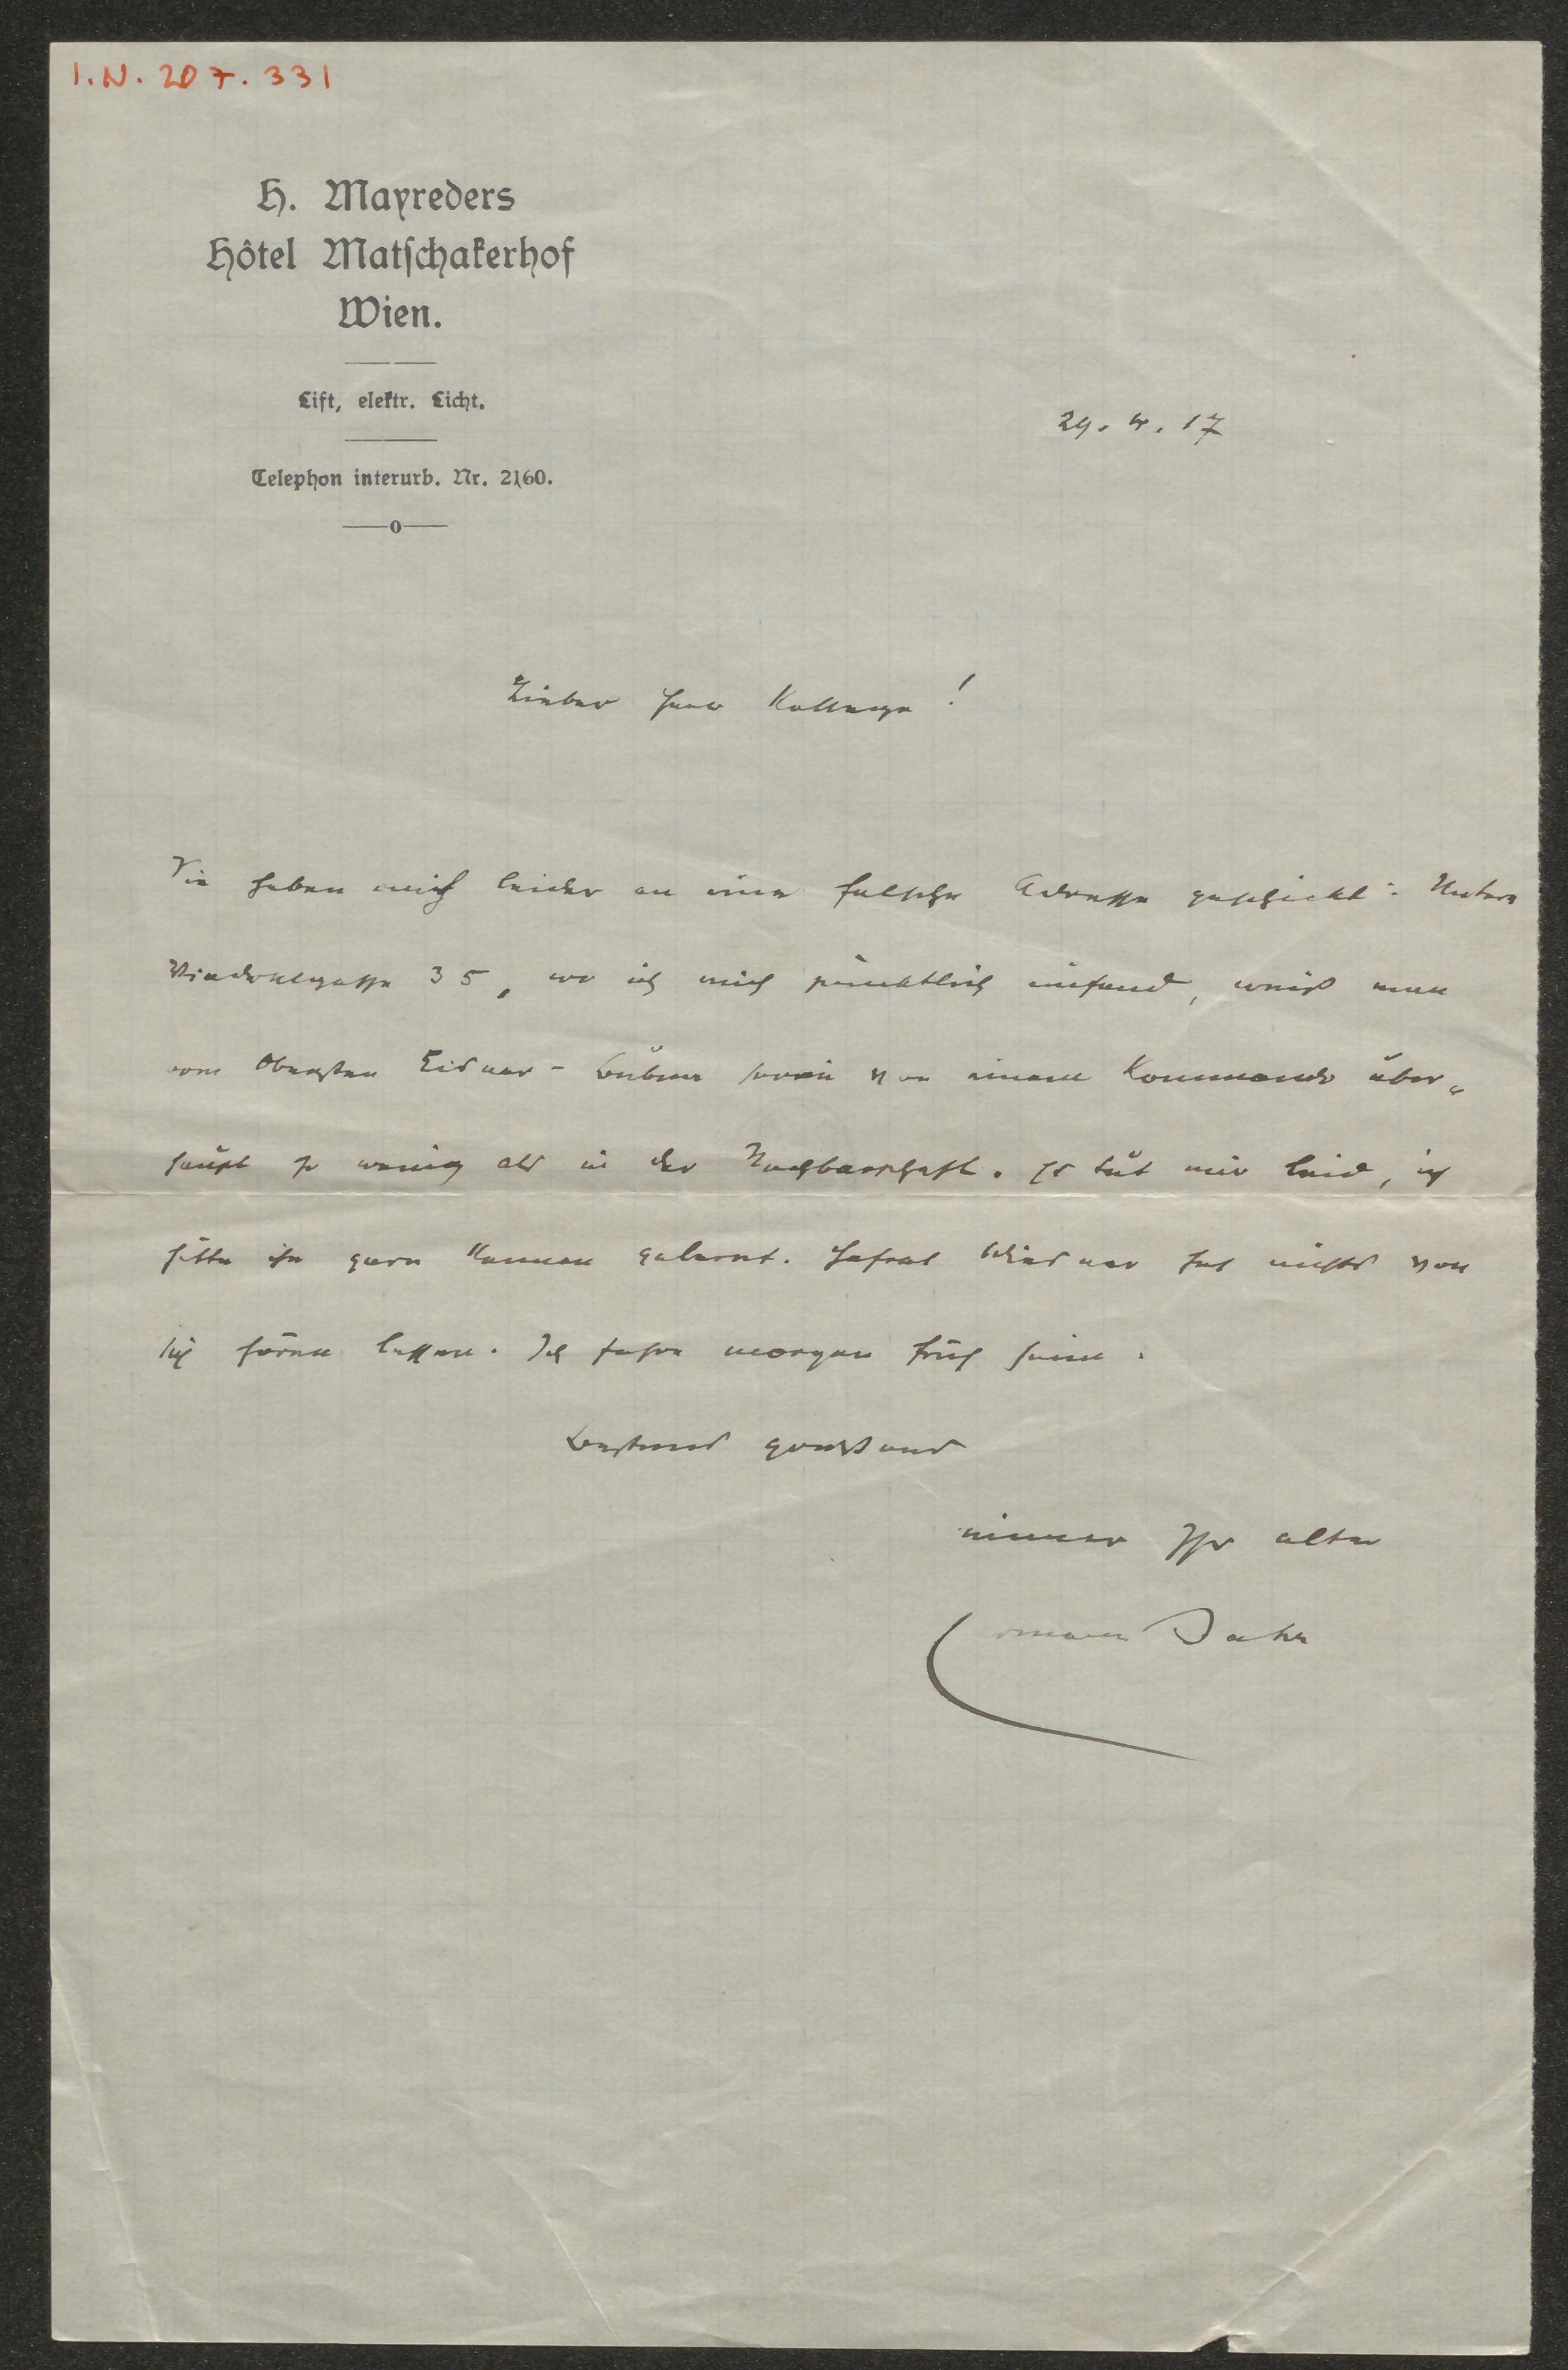 I.N. 207.331
H. Mayreders
Hôtel Matschakerhof
Wien.
Lift, elektr. Licht.
29. 4. 17
Telephon interurb. Nr. 2160.
Lieber Herr Kollege!
Sie haben mich leider an eine falsche Adresse geschickt: Untere
Viaduktgasse 35, wo ich mich pünktlich einfand, weiß man
vom Obersten Eisner-Bubna sowie von einem Kommando über-
haupt so wenig als in der Nachbarschaft. Es tut mir leid, ich
hätte ihn gern kennen gelernt. Hofrat Wiesner hat nichts von
sich hören lassen. Ich fahre morgen früh heim.
Bestens grüssend
immer Ihr alter
Hermann Bahr